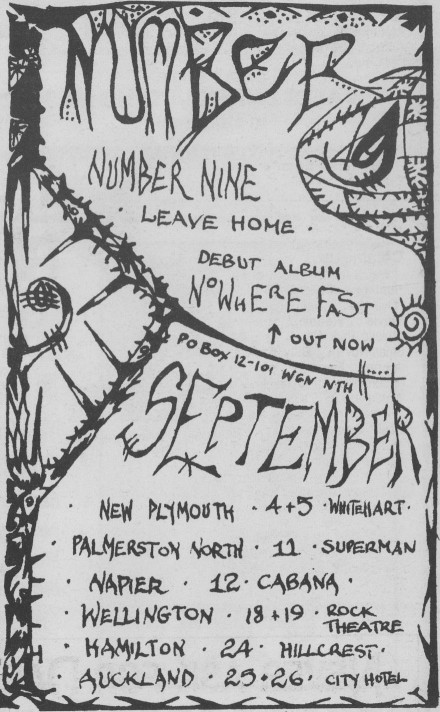 NUMBER
NUMBER NINE
· LEAVE HOME ·
DEBUT ALBUM
NOWHERE FAST
↑ OUT NOW
PO BOX 12-101 WGN NTH
SEPTEMBER
· NEW PLYMOUTH · 4+5 · WHITEHART ·
· PALMERSTON NORTH · 11 · SUPERMAN
· NAPIER · 12 · CABANA ·
· WELLINGTON · 18+19 · ROCK THEATRE
· HAMILTON · 24 · HILLCREST ·
· AUCKLAND · 25·26 · CITY HOTEL